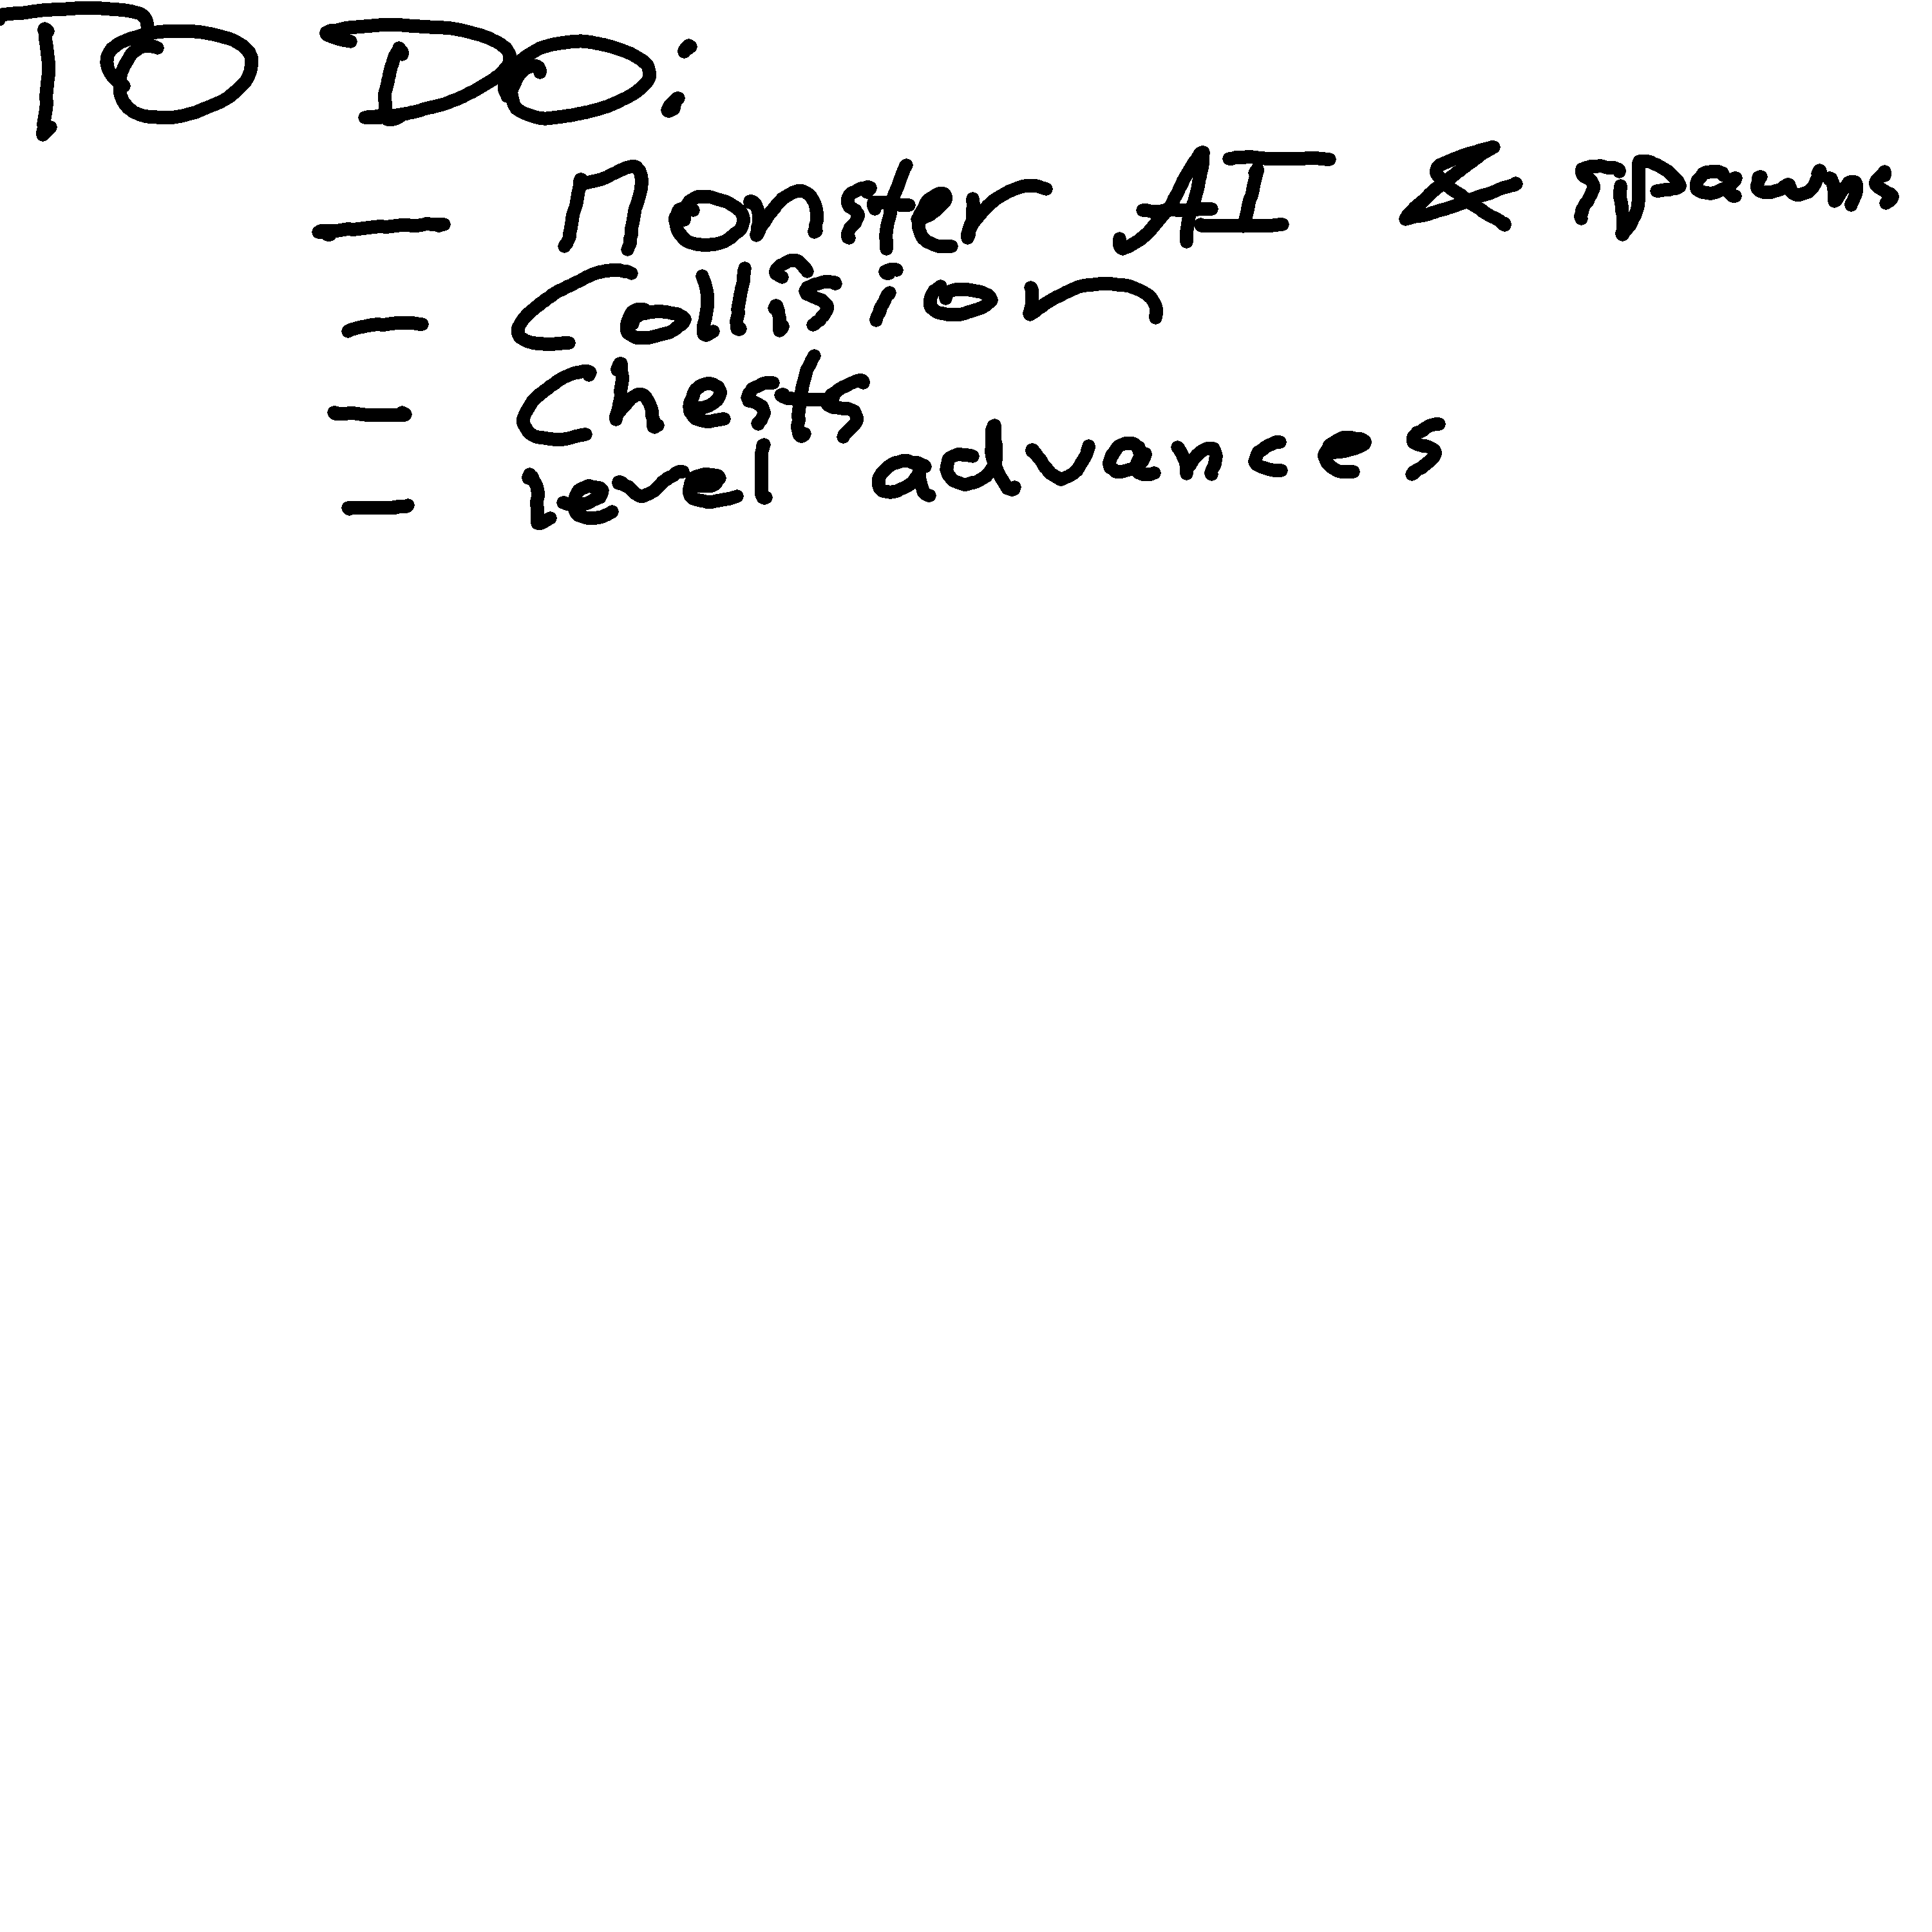 TO DO:
- Monster AI & spawns
- Collision
- Chests
- level advances